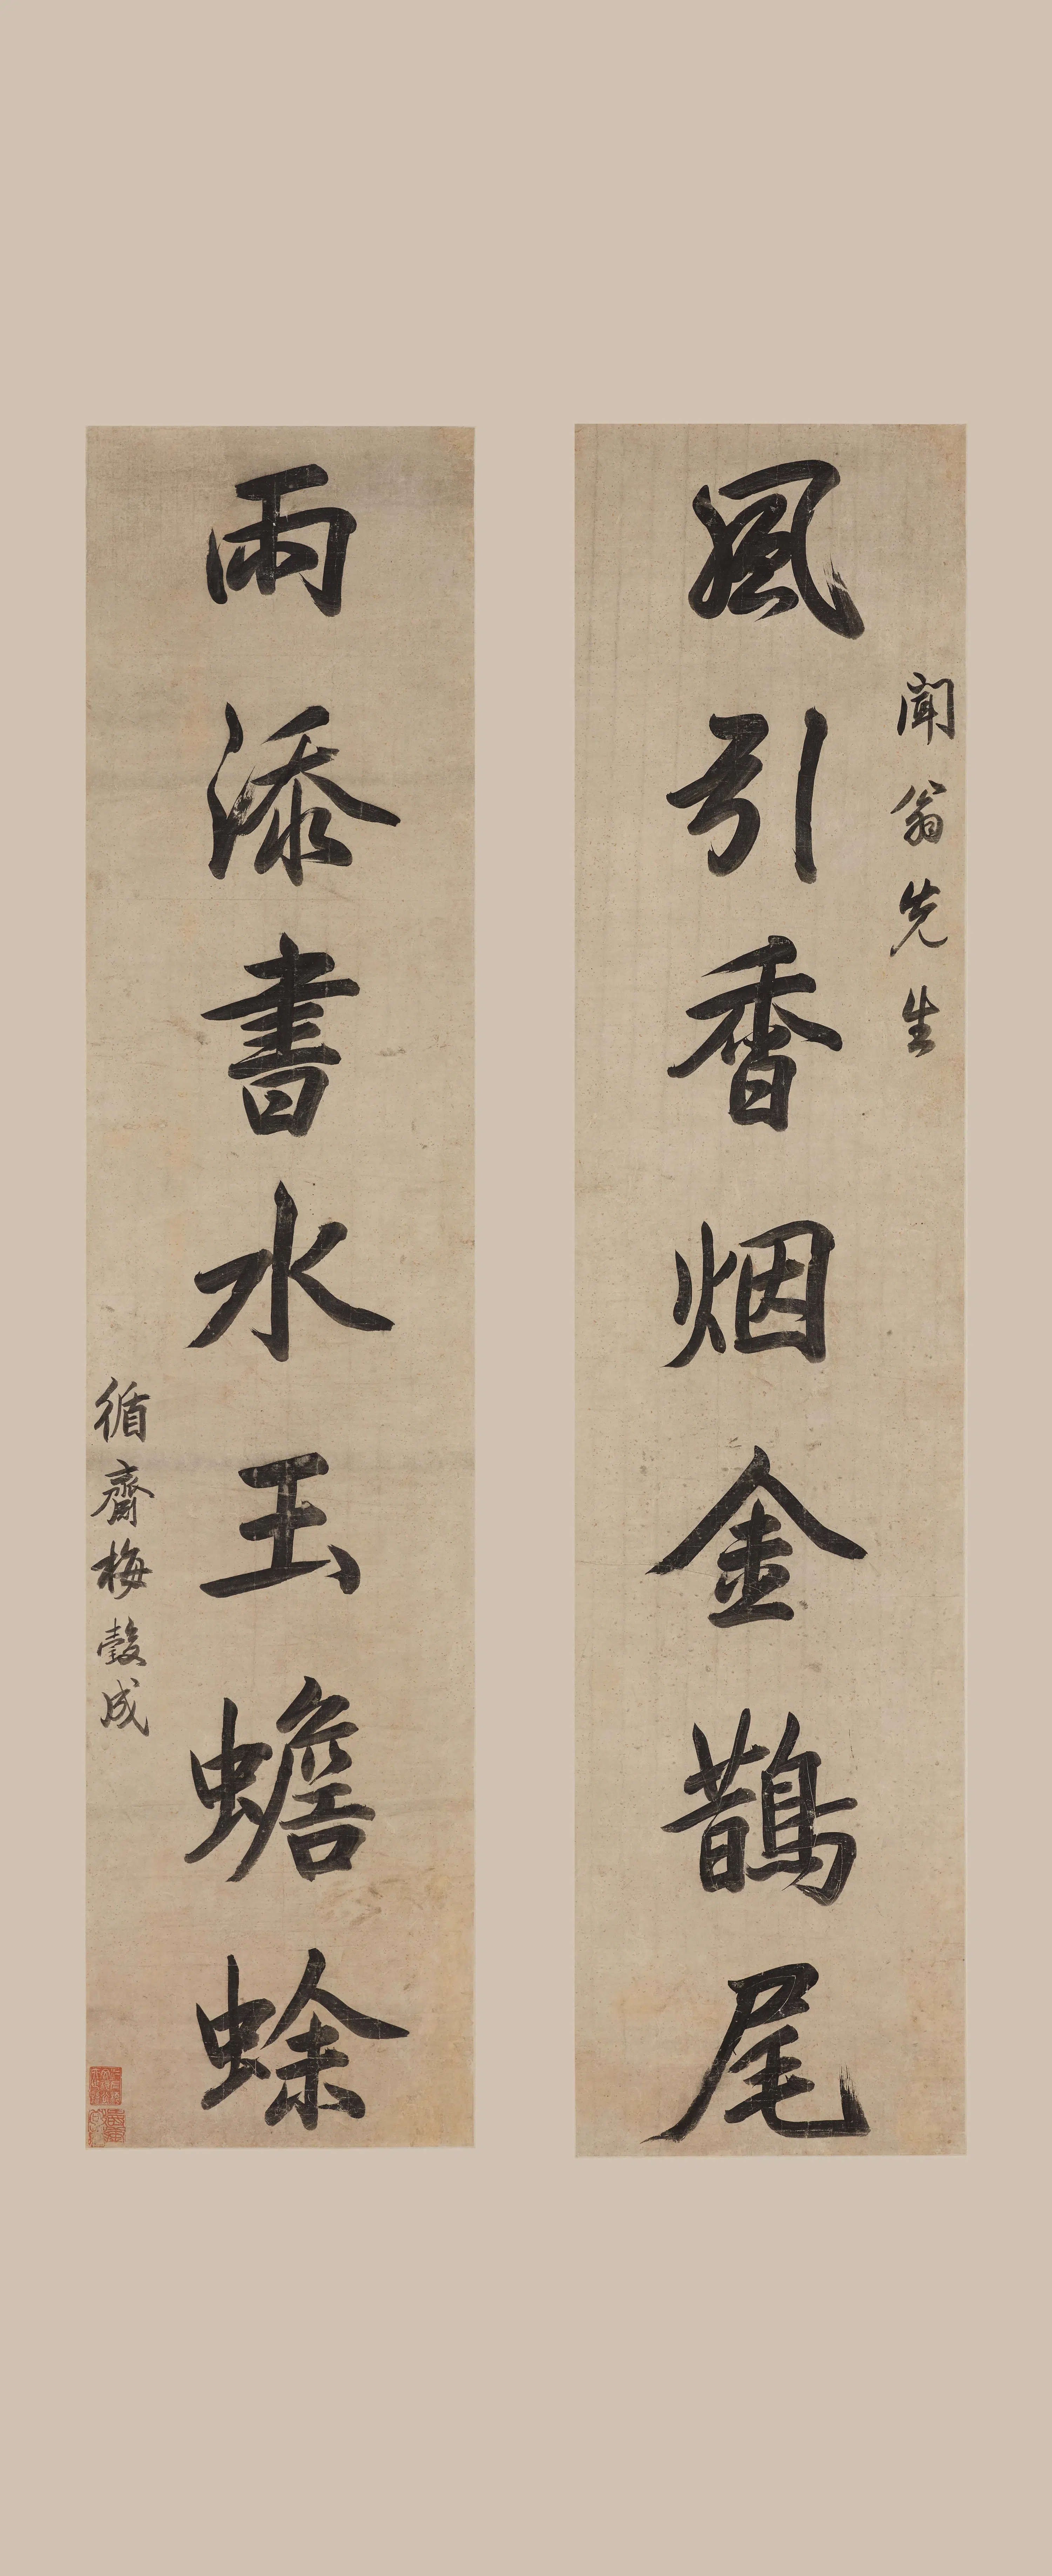 聞翁先生
風引香烟金鵲尾
雨添書水玉蟾蜍
循齋梅瑴成